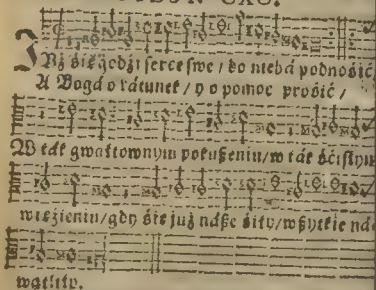 Jż się godzi serce swe / ko niebá podnosić
A Bogá o rátunek / y o pomoc prosić /
W ták gwałtownym pokuszeniu / w ták ścisłym
więzieniu / gdy się już náße siły / wßytkie
wątliły.